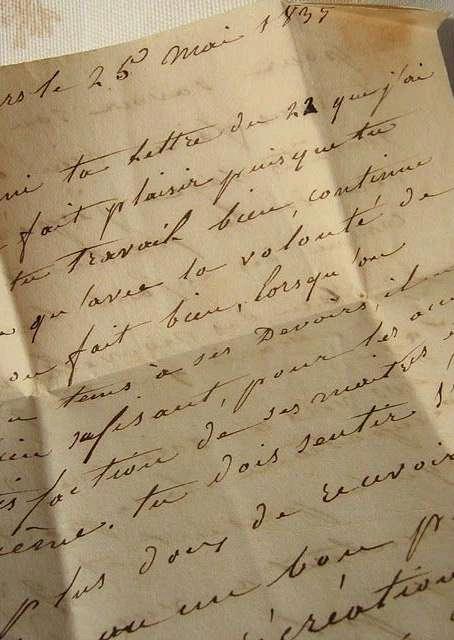 rs le 25 mai 183
ni ta lettre du 22 que j'ai
fait plaisir puisque tu
tu travail bien, continue
qu'avec la volonté de
ou fait bien, lorsqu'on
tems à ses Devoirs, il
sufisant, pour les
faction de ses maitres
ême. tu dois sentir
plus doux de recevoir
ou un bon p
récréation